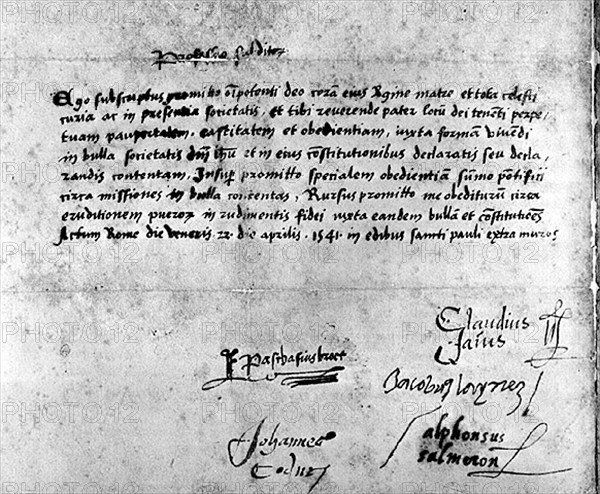 Professio subditor
Ego subscriptus promitto oīpotenti deo corā eius vgine matre et tota celesti
curia ac in presentia societatis, et tibi reverende pater locū dei tenēti perpe-
tuam paupertatem, castitatem et obedientiam, iuxta formam vivēdi
in bulla societatis dnī ihū et in eius cōstitutionibus declaratis seu decla-
randis contentam. Insup promitto specialem obedientiā sūmo pontifici
circa missiones in bulla contentas, Rursus promitto me obediturū circa
eruditionem pueror in rudimentis fidei iuxta eandem bullā et cōstitutiões
Actum Rome die veneris .22. die aprilis .1541. in edibus sancti pauli extra muros
Claudius
Jaius
Paschasius broet
Jacobus laynez
Johannes
Codur
alphonsus
salmeron
PHOTO12